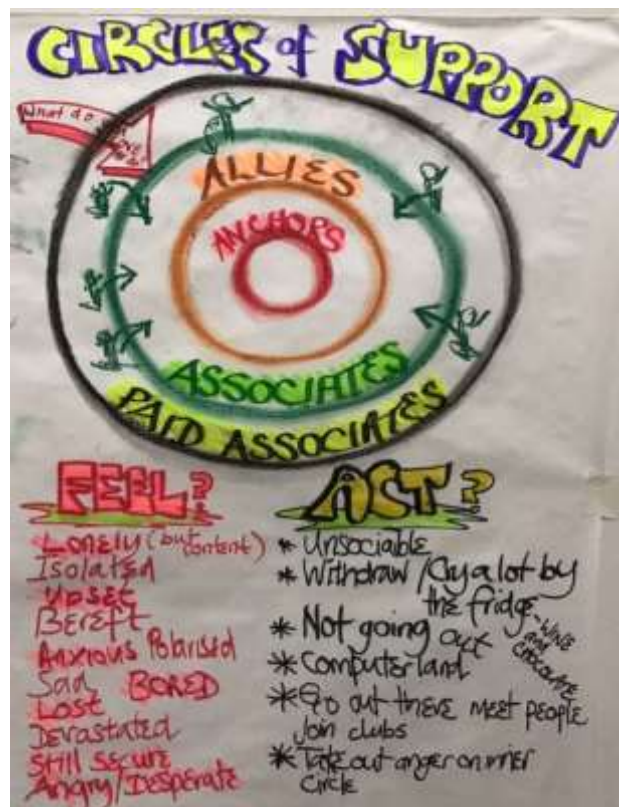 CIRCLES of SUPPORT
What do
ALLIES
ANCHORS
ASSOCIATES
PAID ASSOCIATES
FEEL?
Lonely (but content)
Isolated
Upset
Bereft
Anxious Polarised
Sad BORED
Lost
Devastated
Still secure
Angry/Desperate
ACT?
* Unsociable
* Withdraw / Cry a lot by
the fridge - WINE
and
CHOCOLATE
* Not going out
* Computerland
* Go out there meet people
Join clubs
* Take out anger on inner
circle